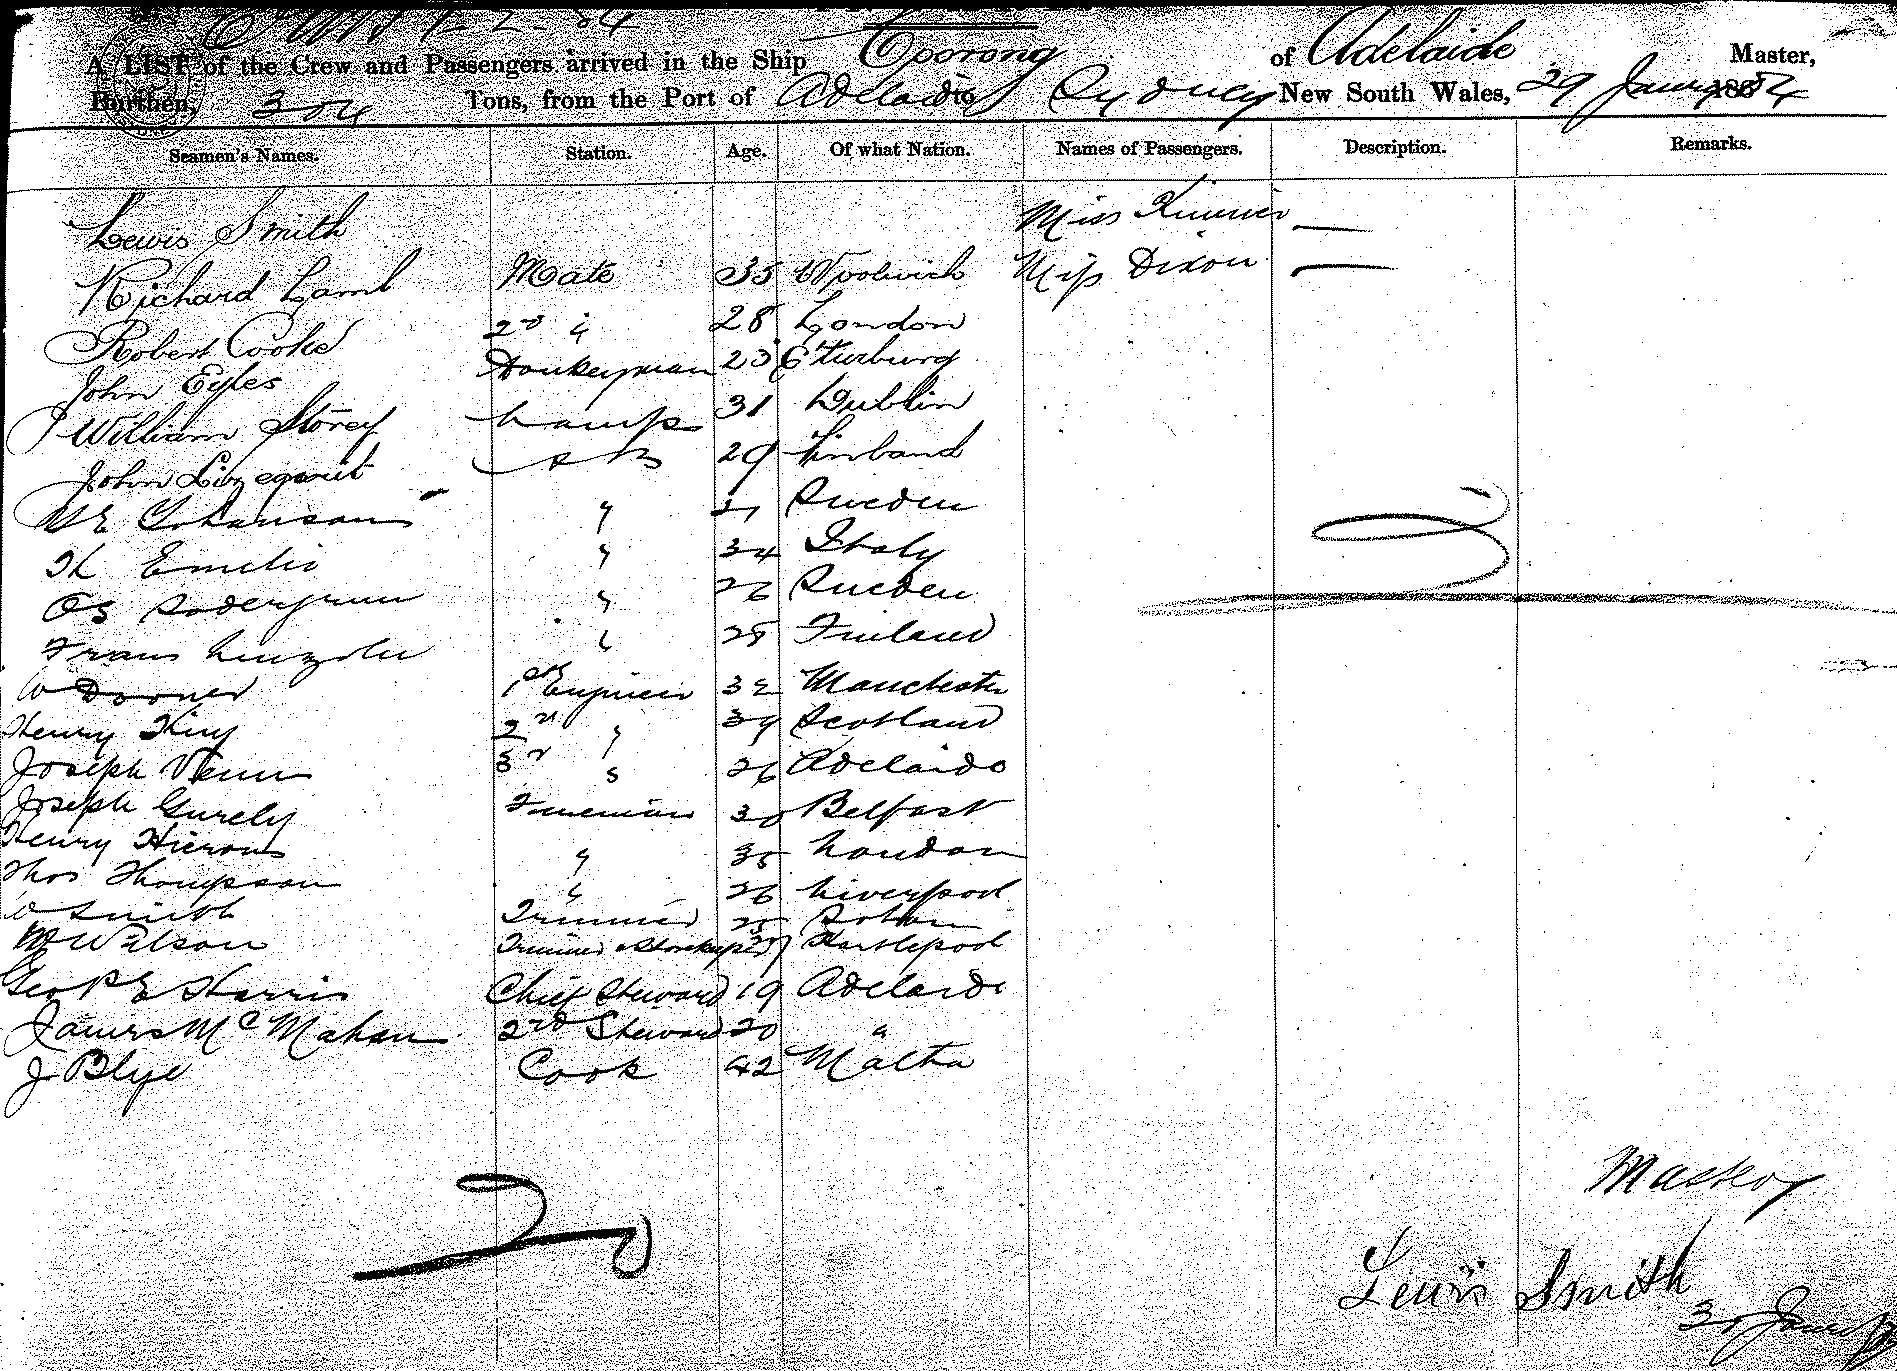 A LIST of the Crew and Passengers arrived in the Ship Coorong of Adelaide Master,
Burthen, 304 Tons, from the Port of Adelaide to Sydney New South Wales, 29 Jany 1884
Seamen's Names. Station. Age. Of what Nation. Names of Passengers. Description. Remarks.
Lewis Smith Miss
Richard Lamb Mate 35 Woolwich Miss Dixon
Robert Cooke 2nd " 28 London
John Eyles Donkeyman 23
William Storey Lamps 31 Dublin
John A B 29 Finland
Johansson " Sweden
Emelio " 34 Italy
" 26 Sweden
Frans " 28 Finland
W 1st Engineer 32 Manchester
Henry King 2nd " 39 Scotland
Joseph Venn 3rd " 26 Adelaide
Joseph Gurely Fireman 30 Belfast
Henry Hierons " 35 London
Thos Thompson " 26 Liverpool
W Smith Trimmer 25
W Watson Trimmer & Storekeeper Hartlepool
Geo P E Harris Chief Steward 19 Adelaide
James McMahon 2nd Steward 20 "
J Blye Cook 42 Malta
20
Master
Lewis Smith
30 Jany